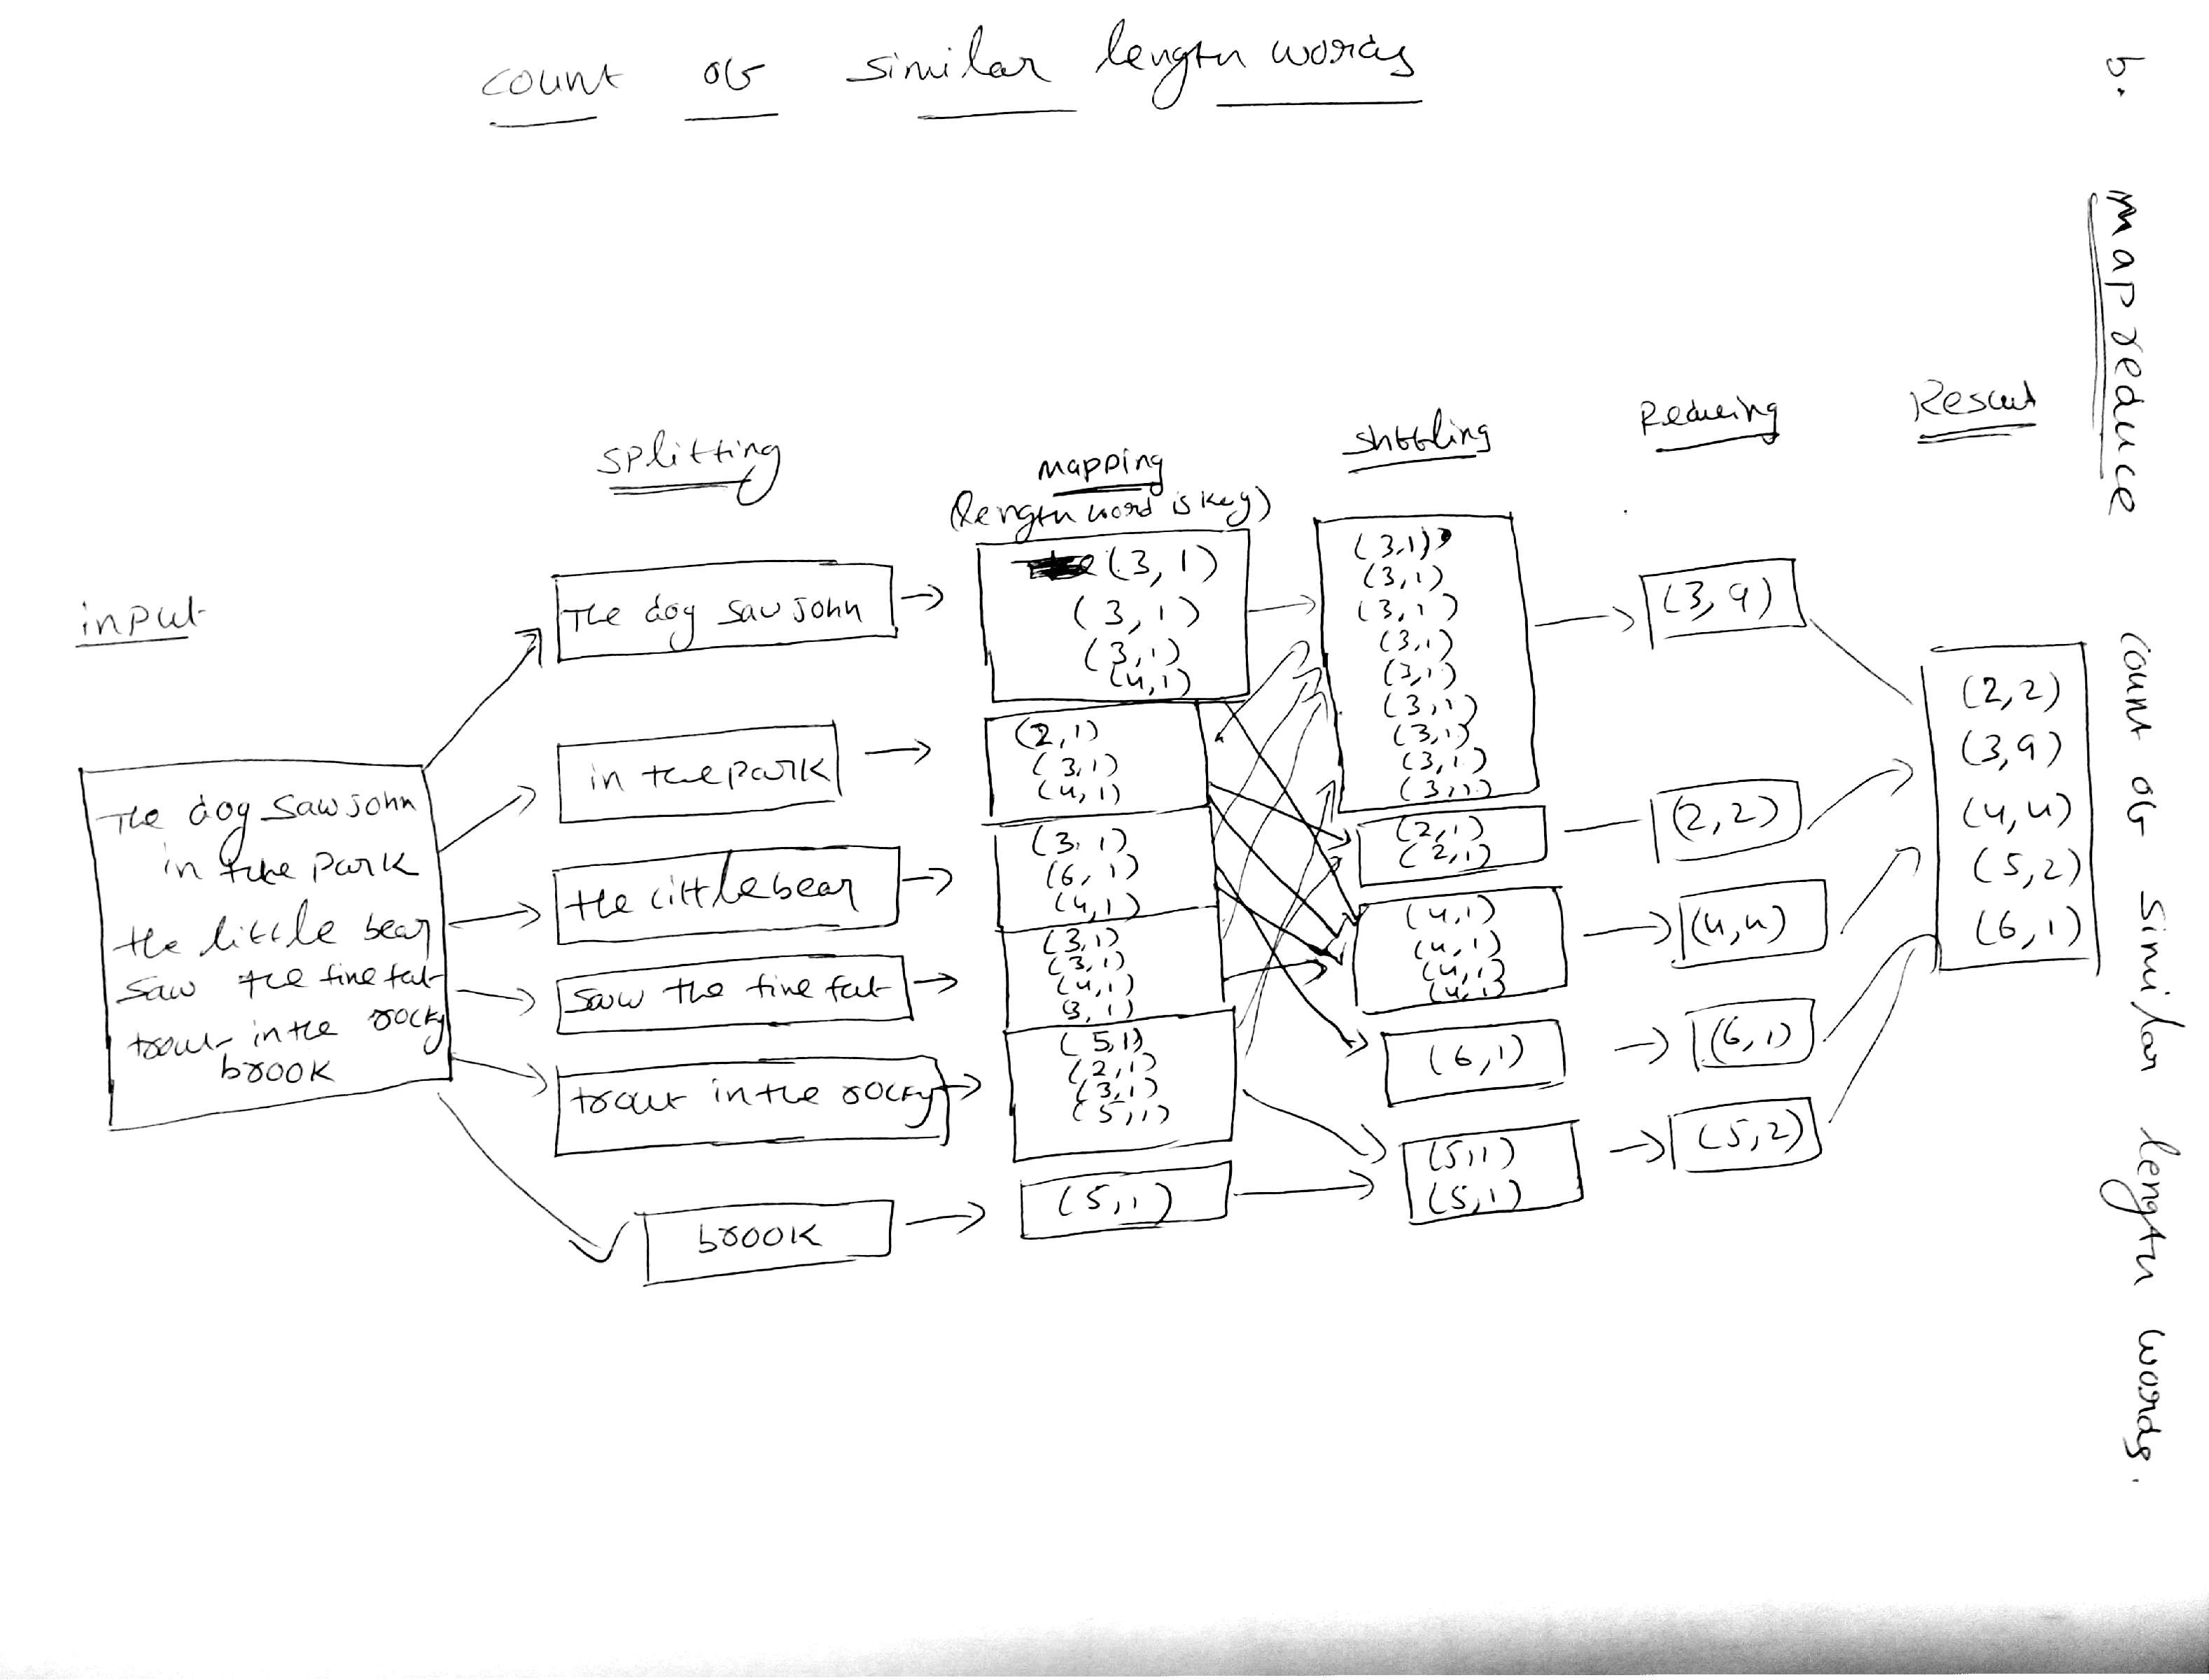 count of similar length words
b. mapreduce count of similar length words.
input
The dog saw john
in the park
the little bear
saw the fine fat
trout in the rocky
brook
splitting
The dog saw john
in the park
the little bear
saw the fine fat
trout in the rocky
brook
mapping
(length word is key)
(3,1)
(3,1)
(3,1)
(4,1)
(2,1)
(3,1)
(4,1)
(3,1)
(6,1)
(4,1)
(3,1)
(3,1)
(4,1)
(3,1)
(5,1)
(2,1)
(3,1)
(5,1)
(5,1)
shffling
(3,1)
(3,1)
(3,1)
(3,1)
(3,1)
(3,1)
(3,1)
(3,1)
(3,1)
(2,1)
(2,1)
(4,1)
(4,1)
(4,1)
(4,1)
(6,1)
(5,1)
(5,1)
Reducing
(3,9)
(2,2)
(4,4)
(6,1)
(5,2)
Result
(2,2)
(3,9)
(4,4)
(5,2)
(6,1)